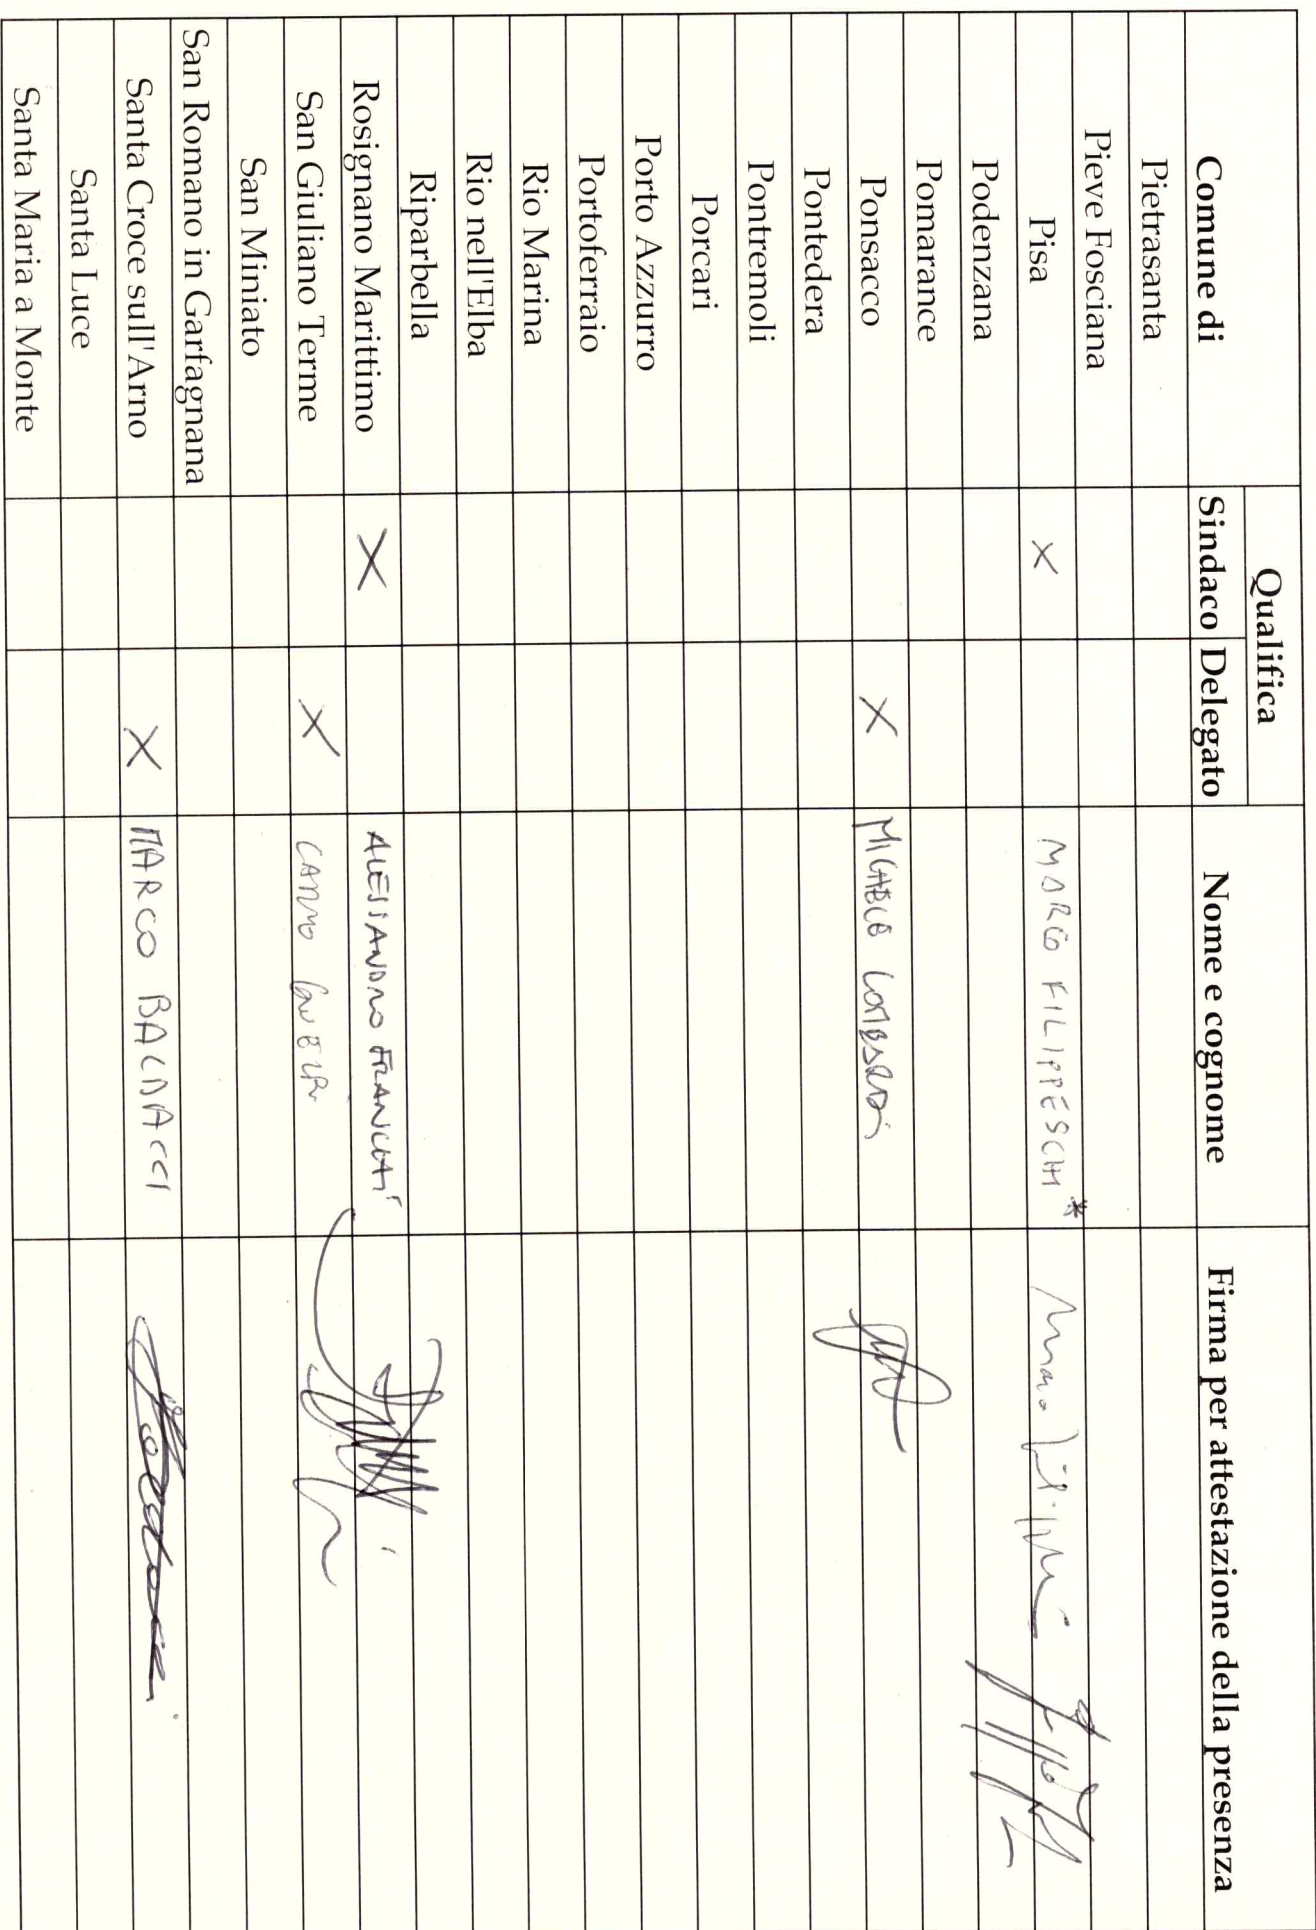 Qualifica
Comune di Sindaco Delegato Nome e cognome Firma per attestazione della presenza
Pietrasanta
Pieve Fosciana
Pisa X MARCO FILIPPESCHI *
Podenzana
Pomarance
Ponsacco X MICHELE LOMBARDI
Pontedera
Pontremoli
Porcari
Porto Azzurro
Portoferraio
Rio Marina
Rio nell'Elba
Riparbella
Rosignano Marittimo X ALESSANDRO FRANCHI
San Giuliano Terme X
San Miniato
San Romano in Garfagnana
Santa Croce sull'Arno X MARCO BALDACCI
Santa Luce
Santa Maria a Monte